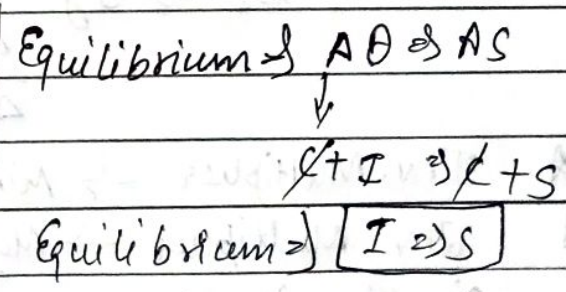 Equilibrium ⇒ AD ⇒ AS
↓
C + I ⇒ C + S
Equilibrium ⇒ I ⇒ S